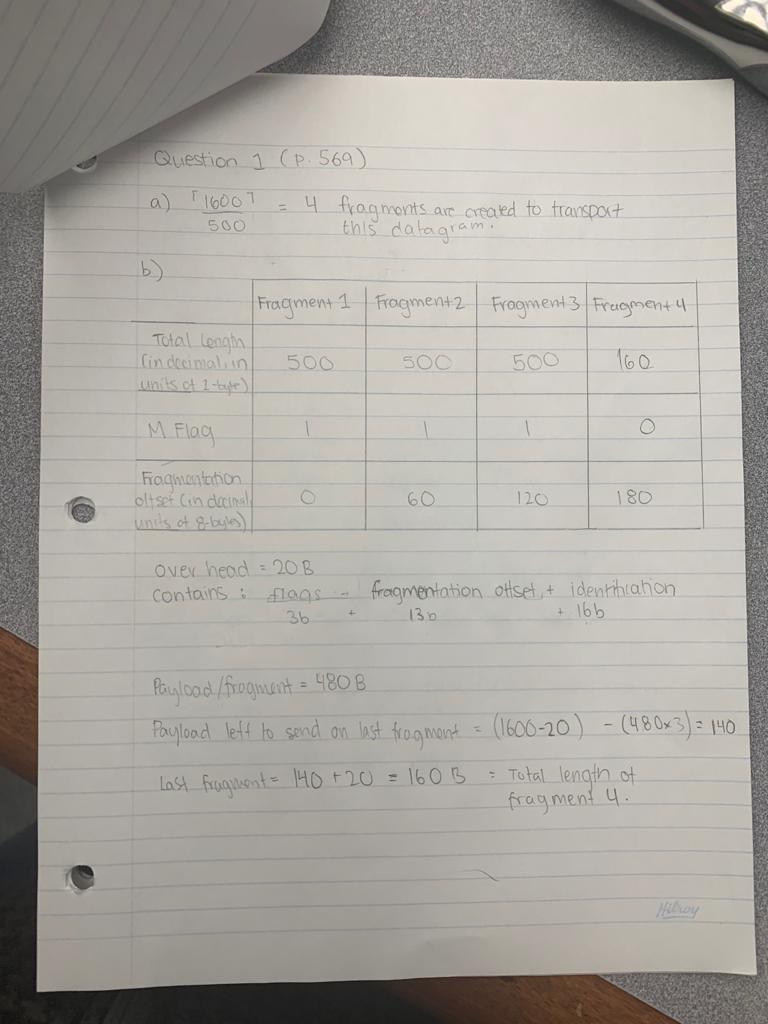 Question 1 (p. 569)
a) ⌈1600⌉ = 4 fragments are created to transport
500 this datagram.
b)
Fragment 1 Fragment 2 Fragment 3 Fragment 4
Total Length
(in decimal, in
units of 1-byte) 500 500 500 160
M Flag 1 1 1 0
Fragmentation
offset (in decimal,
units of 8-bytes) 0 60 120 180
over head = 20B
contains : flags - fragmentation offset, + identification
3b + 13b + 16b
Payload/fragment = 480B
Payload left to send on last fragment = (1600-20) - (480x3) = 140
Last fragment = 140 + 20 = 160 B = Total length of
fragment 4.
Hilroy